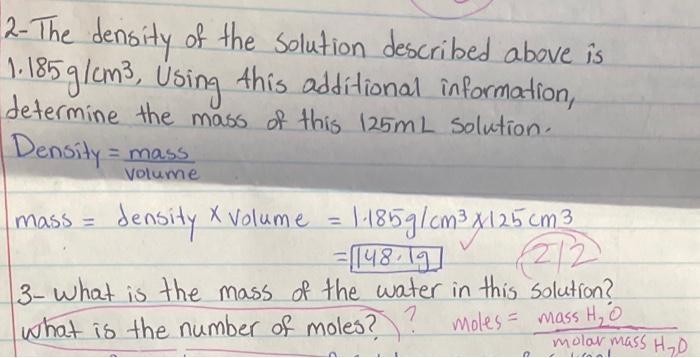 2- The density of the solution described above is
1.185g/cm3, Using this additional information,
determine the mass of this 125mL solution.
Density = mass
volume
mass = density x volume = 1.185g/cm3 x 125 cm3
= 148.1g
2/2
3- what is the mass of the water in this solution?
what is the number of moles? ? moles = mass H2O
molar mass H2O